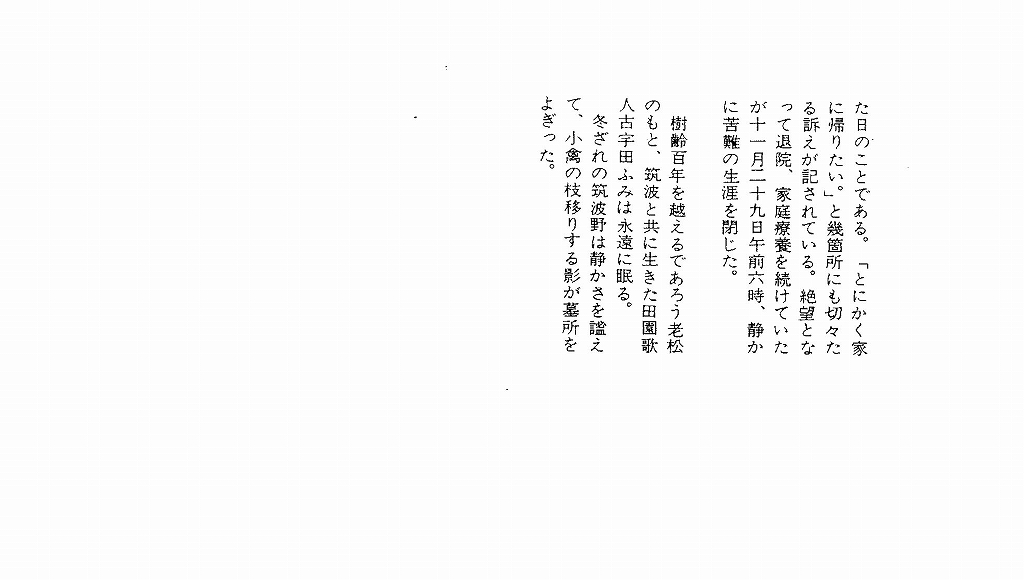 た日のことである。「とにかく家
に帰りたい。」と幾箇所にも切々た
る訴えが記されている。絶望とな
って退院、家庭療養を続けていた
が十一月二十九日午前六時、静か
に苦難の生涯を閉じた。
樹齢百年を越えるであろう老松
のもと、筑波と共に生きた田園歌
人古宇田ふみは永遠に眠る。
冬ざれの筑波野は静かさを謐え
て、小禽の枝移りする影が墓所を
よぎった。